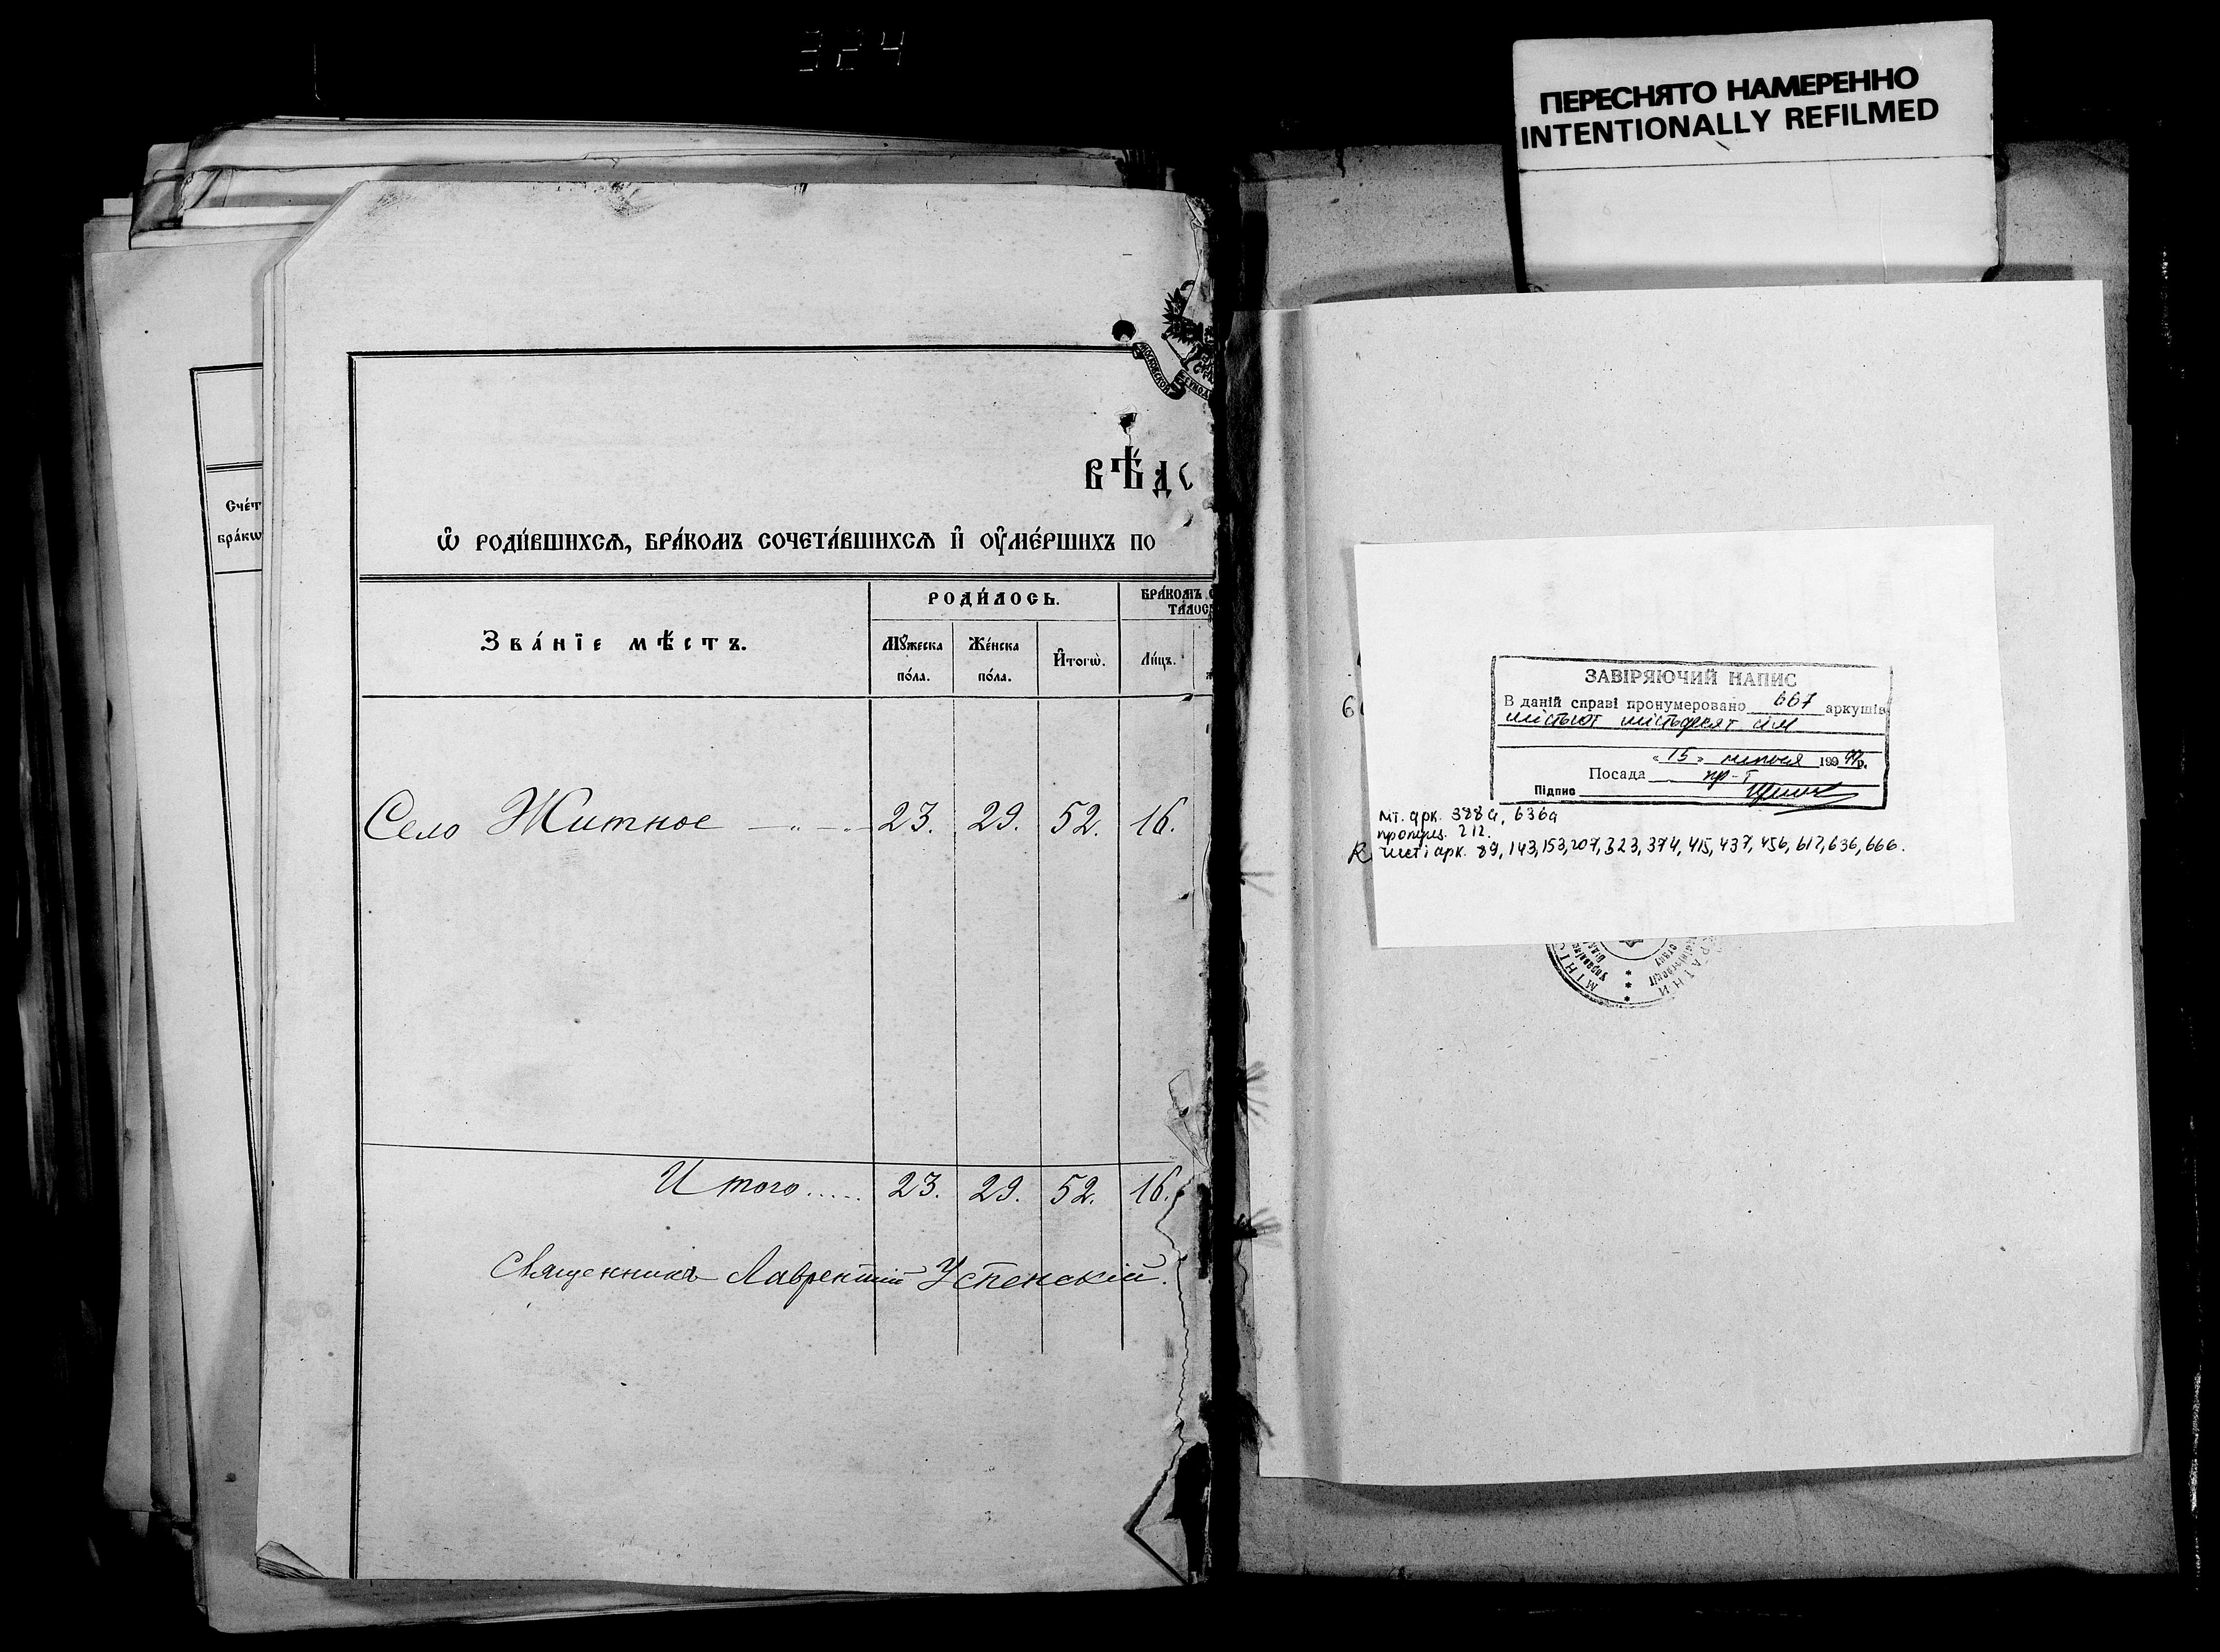 324
ПЕРЕСНЯТО НАМЕРЕННО
INTENTIONALLY REFILMED
Счéт
брáкѡ
МОСКОВСКОЙ
СѴНОД
вѣ́до
Ѡ҆ РОДИ́ВШИХСѦ, БРА́КОМЪ СОЧЕТА́ВШИХСѦ И҆ ОУ҆МЕ́РШИХЪ ПО
РОДИ́ЛОСЬ.
БРА́КОМЪ С
ТА́ЛОСЬ
Зва́нїе мѣ́стъ.
Мꙋ́жеска по́ла.
Же́нска по́ла.
И҆тогѡ̀.
Ли́цъ.
Село Житное — „ — „ — 23. 29. 52. 16.
Итого..... 23. 29. 52. 16.
Священникъ Лаврентій Успенскій.
ЗАВІРЯЮЧИЙ НАПИС
В даній справі пронумеровано 667 аркушів
шістсот шістдесят сім
"15" липня 199 р.
Посада
Підпис
літ. арк. 388а, 636а
пропущ. 212.
чисті арк. 89, 143, 153, 207, 323, 374, 415, 437, 456, 617, 636, 666.